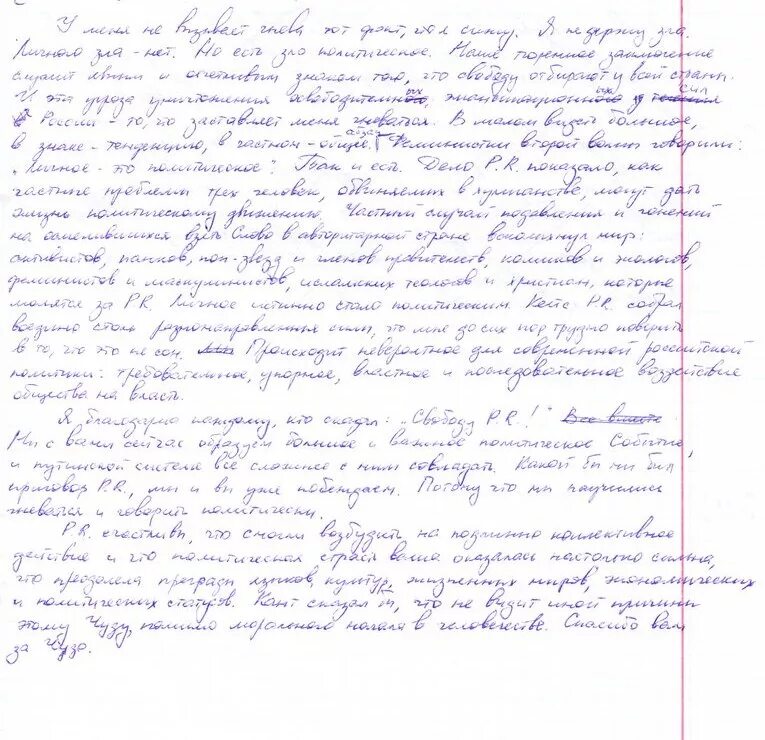 У меня не вызывает гнева тот факт, что я сижу. Я не держу зла.
Личного зла - нет. Но есть зло политическое. Наше тюремное заключение
служит явным и отчетливым знаком того, что свободу отбирают у всей страны.
И эта угроза уничтожения освободительных, эмансипационных сил
в России - то, что заставляет меня гневаться. В малом видеть большое,
в знаке - тенденцию, в частном - общее. Феминистки второй волны говорили:
„Личное - это политическое". Так и есть. Дело P.R. показало, как
частные проблемы трех человек, обвиняемых в хулиганстве, могут дать
жизнь политическому движению. Частный случай подавления и гонений
на осмелившихся взять Слово в авторитарной стране всколыхнул мир:
активистов, панков, поп-звезд и членов правительств, комиков и экологов,
феминистов и маскулинистов, исламских теологов и христиан, которые
молятся за P.R. Личное истинно стало политическим. Кейс P.R. собрал
воедино столь разнонаправленные силы, что мне до сих пор трудно поверить
в то, что это не сон. Происходит невероятное для современной российской
политики: требовательное, упорное, властное и последовательное воздействие
общества на власть.
Я благодарна каждому, кто сказал: „Свободу P.R.!" Все вместе
Мы с вами сейчас образуем большое и важное политическое Событие,
и путинской системе все сложнее с ним совладать. Какой бы ни был
приговор P.R., мы и вы уже побеждаем. Потому что мы научились
гневаться и говорить политически.
P.R. счастливы, что смогли возбудить на подлинно коллективное
действие и что политическая страсть ваша оказалась настолько сильна,
что преодолела преграды языков, культур, жизненных миров, экономических
и политических статусов. Кант сказал бы, что не видит иной причины
этому Чуду, помимо морального начала в человечестве. Спасибо вам
за Чудо.